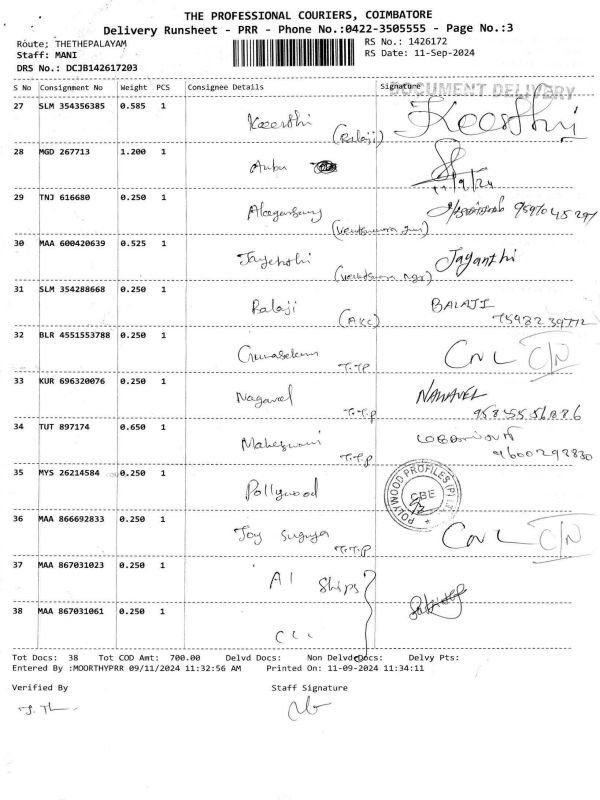 THE PROFESSIONAL COURIERS, COIMBATORE
Delivery Runsheet - PRR - Phone No.:0422-3505555 - Page No.:3
Route; THETHEPALAYAM
RS No.: 1426172
Staff: MANI
RS Date: 11-Sep-2024
DRS No.: DCJB142617203
DOCUMENT DELIVERY
S No Consignment No Weight PCS Consignee Details Signature
27 SLM 354356385 0.585 1
Keerthi (Balaji) Keerthi
28 MGD 267713 1.200 1
Anbu 11/9/24
29 TNJ 616680 0.250 1
30 MAA 600420639 0.525 1
Jayanthi
31 SLM 354288668 0.250 1
Balaji (AKC) BALAJI
32 BLR 4551553788 0.250 1
T.T.P
33 KUR 696320076 0.250 1
Nagavel T.T.P
34 TUT 897174 0.650 1
Maheswari T.T.P
35 MYS 26214584 0.250 1
Pollywood
POLYWOOD PROFILES (P) LTD
CBE
36 MAA 866692833 0.250 1
Joy T.T.P
37 MAA 867031023 0.250 1
AI Ships
38 MAA 867031061 0.250 1
Tot Docs: 38 Tot COD Amt: 700.00 Delvd Docs: Non Delvd Docs: Delvy Pts:
Entered By :MOORTHYPRR 09/11/2024 11:32:56 AM Printed On: 11-09-2024 11:34:11
Verified By Staff Signature